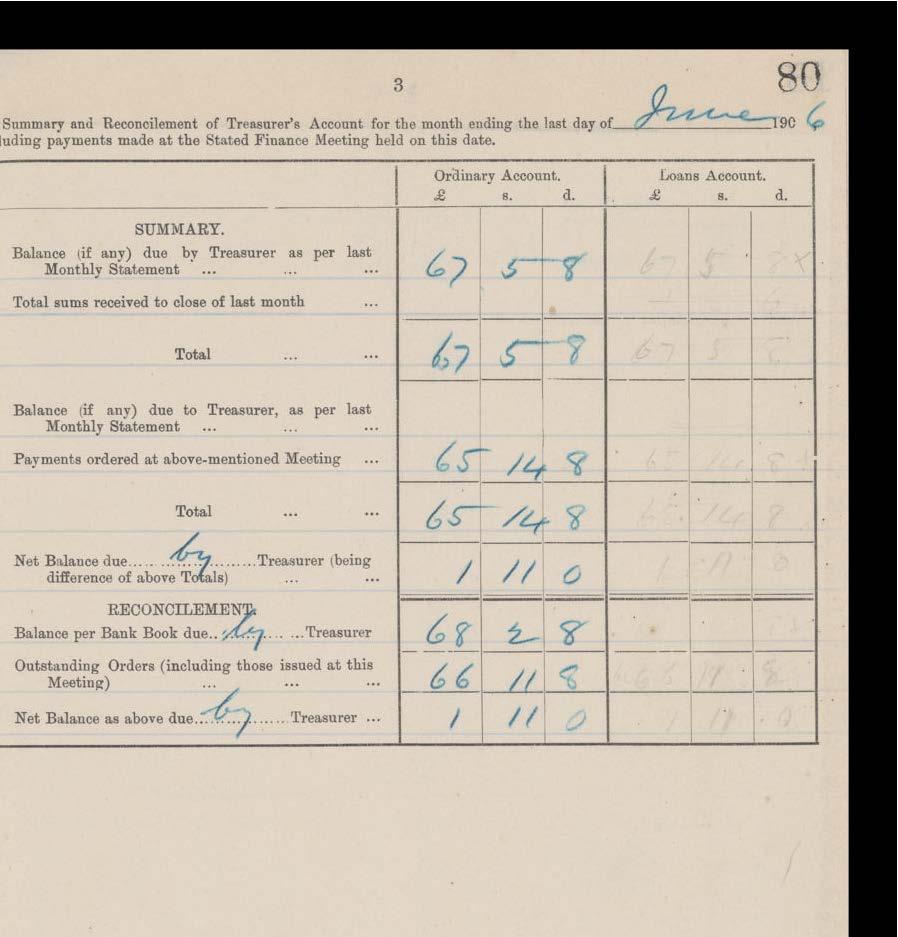 3
80
Summary and Reconcilement of Treasurer's Account for the month ending the last day of June 1906
luding payments made at the Stated Finance Meeting held on this date.
Ordinary Account. Loans Account.
£ s. d. £ s. d.
SUMMARY.
Balance (if any) due by Treasurer as per last
Monthly Statement ... ... ... 67 5 8 67 5 8 x
Total sums received to close of last month ...
Total ... ... 67 5 8 67 5 8
Balance (if any) due to Treasurer, as per last
Monthly Statement ... ... ...
Payments ordered at above-mentioned Meeting ... 65 14 8 65 14 8
Total ... ... 65 14 8 65 14 8
Net Balance due.....by.........Treasurer (being
difference of above Totals) ... ... 1 11 0 1 11 0
RECONCILEMENT.
Balance per Bank Book due..by.... ...Treasurer 68 2 8
Outstanding Orders (including those issued at this
Meeting) ... ... ... 66 11 8 66 11 8
Net Balance as above due....by........Treasurer ... 1 11 0 11 0